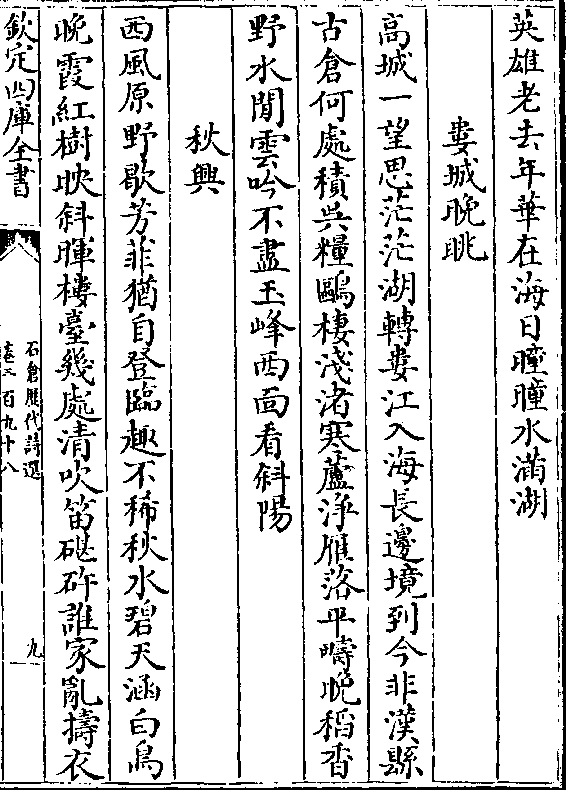 英雄老去年華在海日曈曈水滿湖
婁城晚眺
高城一望思茫茫湖轉婁江入海長邊境到今非漢縣
古倉何處積吳糧鷗棲淺渚寒蘆淨雁落平疇晚稻香
野水閒雲吟不盡玉峰西面看斜陽
秋興
西風原野歇芳菲猶自登臨趣不稀秋水碧天涵白鳥
晚霞紅樹映斜暉樓臺幾處清吹笛砧杵誰家亂擣衣
欽定四庫全書
石倉歷代詩選
卷三百九十八
九